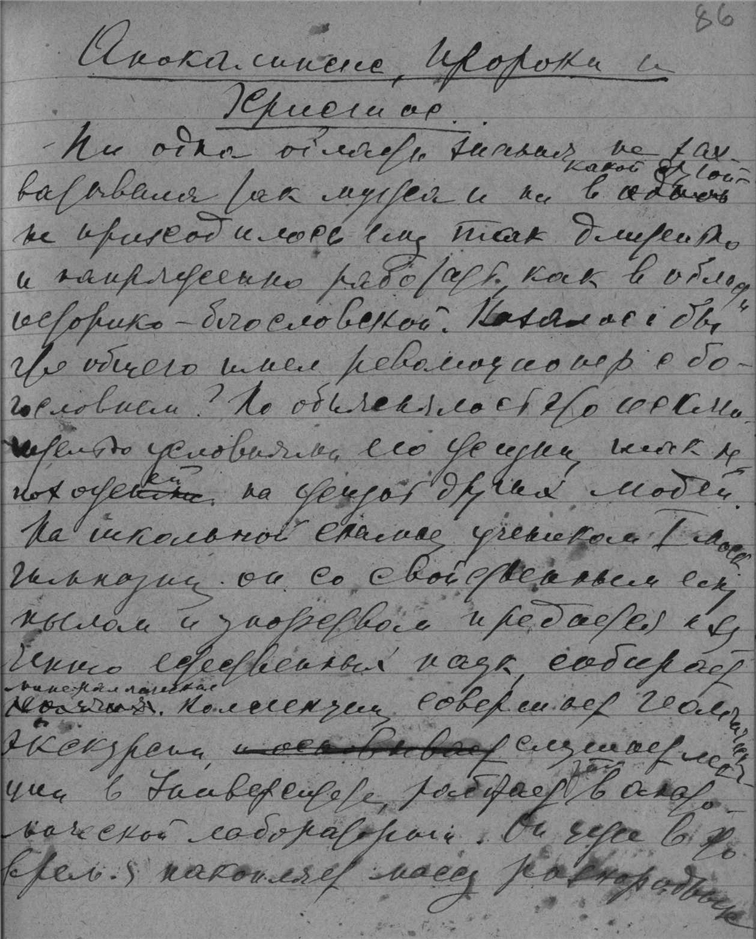 86
Апокалипсис, пророки и
Христос.
Ни одна область знания не зах-
какой другой
ватывала так мужа и ни в
не приходилось ему так длительно
и напряженно работать, как в област
историко-богословской. Казалось бы
что общего имел революционер с бо-
гословием? Но объяснялось это исклю-
чительно условиями его жизни, так не
похожей на жизнь других людей.
На школьной скамье учеником I моск
гимназии он со свойственным ему
пылом и упорством предается из
чению естественных наук, собирает
минералогические
коллекции, совершает геологические
экскурсии, слушает лек-
ции в Университете, работает там в анато-
мической лаборатории. Он уже в то
время накопляет массу разнородных